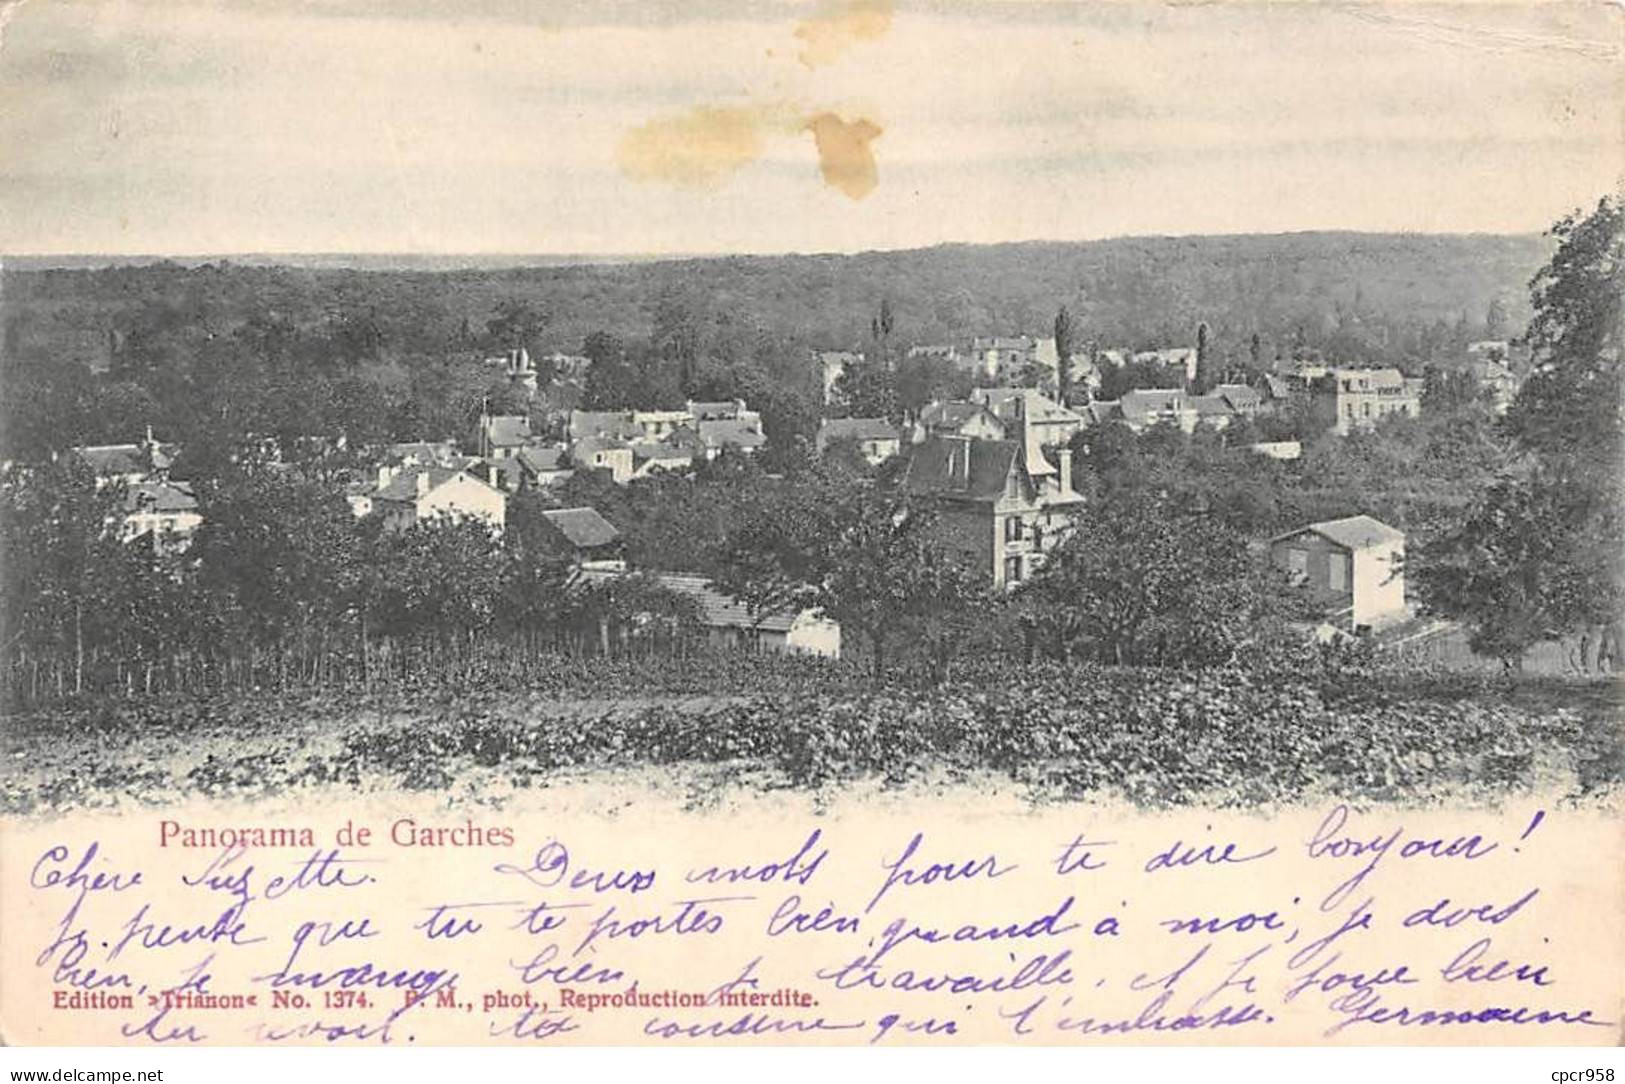 Panorama de Garches
Chère Suzette. Deux mots pour te dire bonjour!
Je pense que tu te portes bien, quand à moi, je dors
bien, je mange bien, je travaille, et je joue bien
Edition »Trianon« No. 1374. P. M., phot., Reproduction interdite.
Au revoir. ta cousine qui t'embrasse. Germaine
Delcampe.net
cpcr958